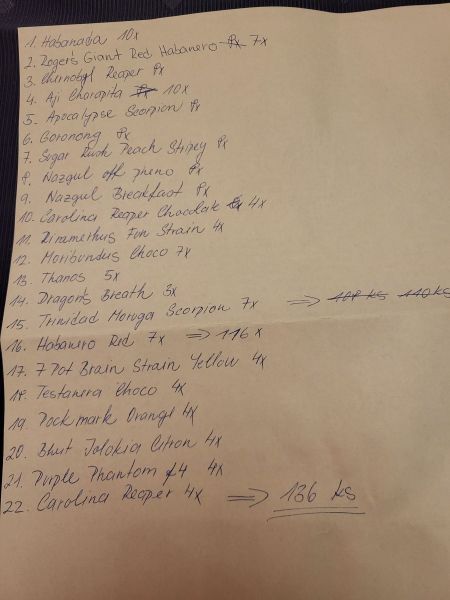 1. Habanada 10x
2. Roger's Giant Red Habanero 8x 7x
3. Chernobyl Reaper 8x
4. Aji Charapita 8x 10x
5. Apocalypse Scorpion 8x
6. Goronong 8x
7. Sugar Rush Peach Stripey 8x
8. Nazgul off pheno 8x
9. Nazgul Breakfast 8x
10. Carolina Reaper Chocolate 4x
11. Zimmerhus Fun Strain 4x
12. Moribundus Choco 7x
13. Thanos 5x
14. Dragon's Breath 3x
15. Trinidad Moruga Scorpion 7x ⇒ 108 ks 110 ks
16. Habanero Red 7x ⇒ 116 x
17. 7 Pot Brain Strain Yellow 4x
18. Testanera Choco 4x
19. Pockmark Orange 4x
20. Bhut Jolokia Citron 4x
21. Purple Phantom 4x
22. Carolina Reaper 4x ⇒ 136 ks